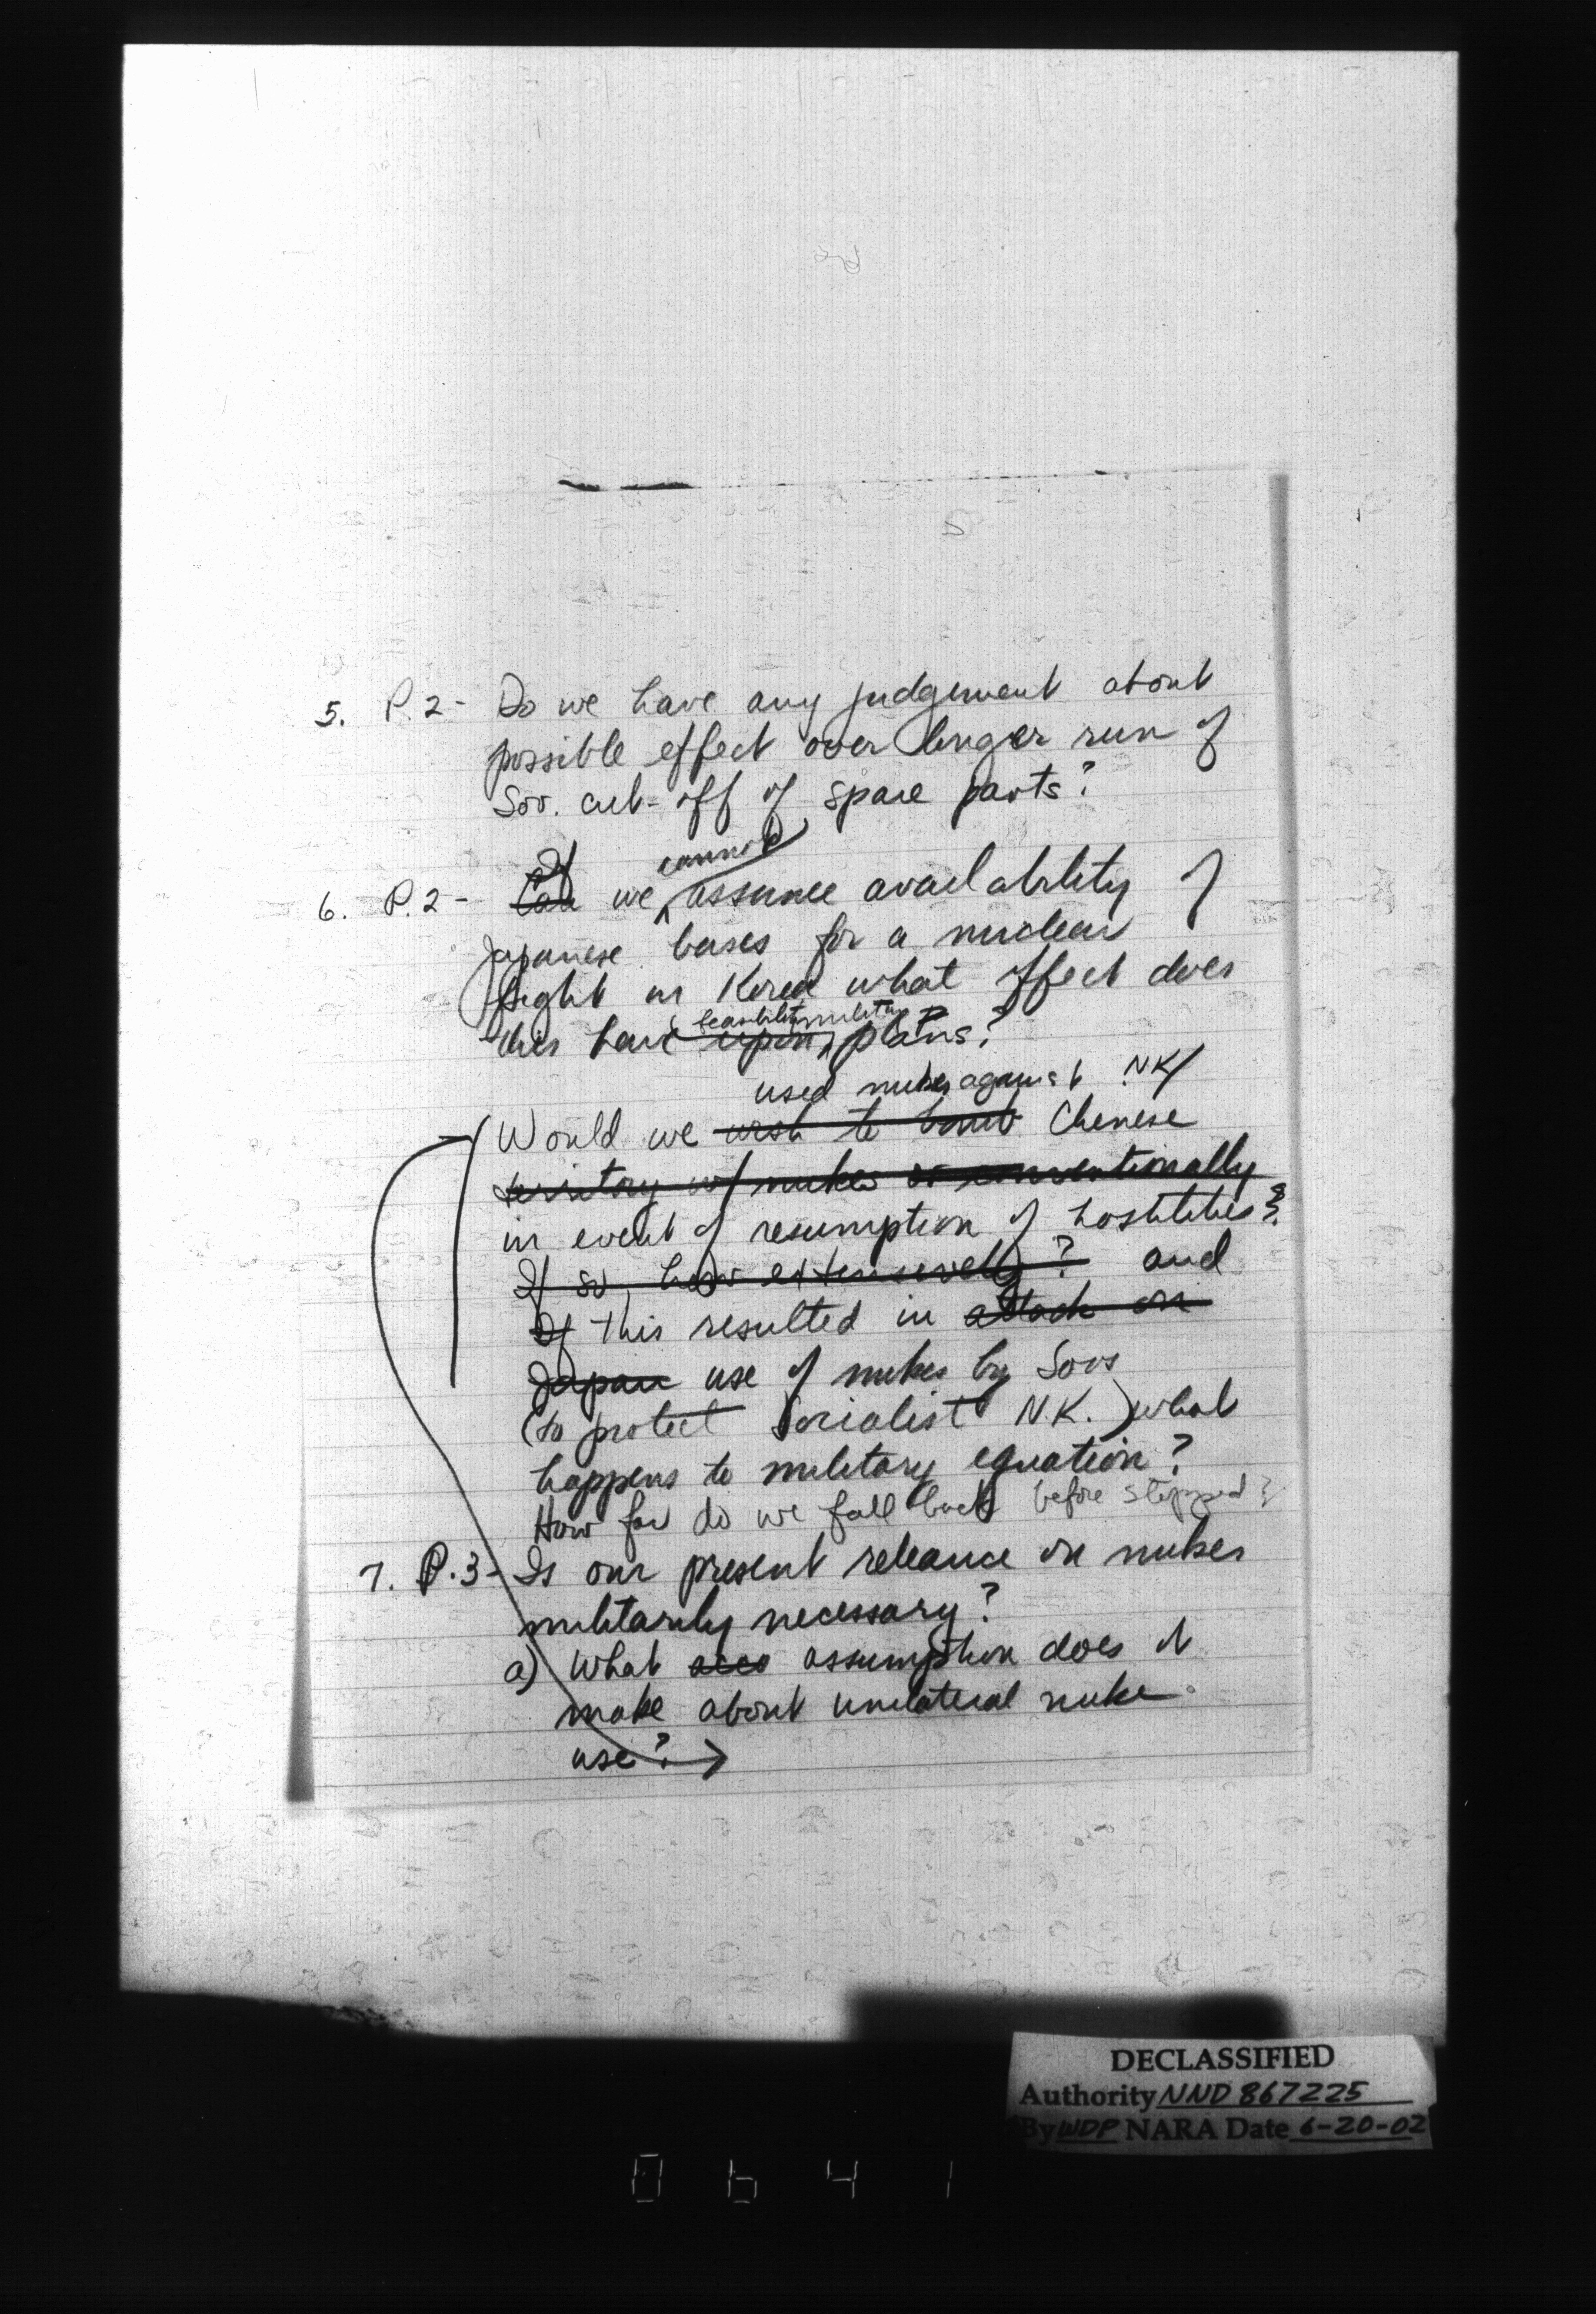 5. P.2 - Do we have any judgement about
possible effect over longer run of
Sov. cut-off of spare parts?
If cannot
6. P.2 - Can we assume availability of
Japanese bases for a nuclear
fight in Korea what effect does
feasibility military
this have upon plans?
used nukes against NK/
Would we wish to bomb Chinese
territory w/ nukes or conventionally
in event of resumption of hostilities?
If so, how extensively? and
If this resulted in attack on
Japan use of nukes by Sovs
(to protect Socialist N.K.) what
happens to military equation?
How far do we fall back before stopped?
7. P.3 - Is our present reliance on nukes
militarily necessary?
a) What assumption does it
make about unilateral nuke
use?
DECLASSIFIED
Authority NND 867225
By WDP NARA Date 6-20-02
0641